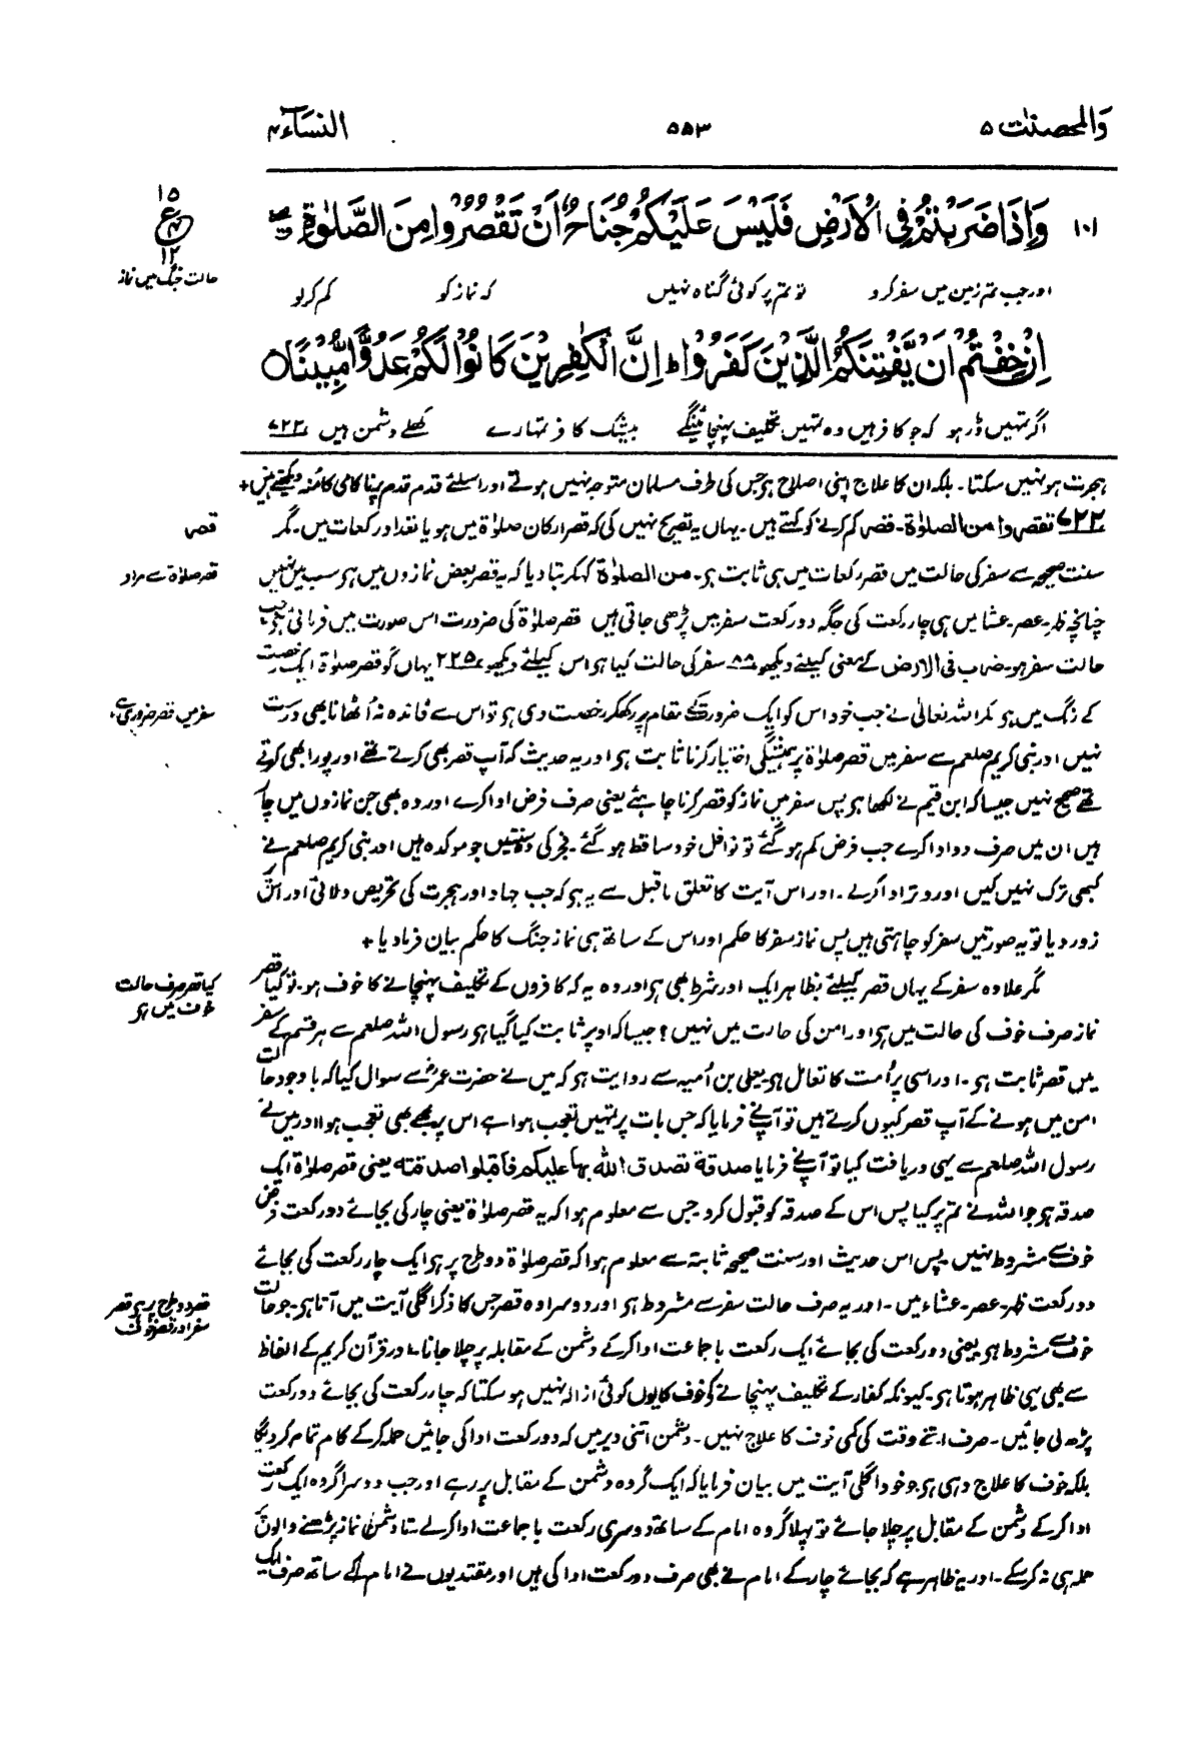 والمحصنت ۵
۵۵۳
النساء ۴
۱۰۱ وَاِذَا ضَرَبْتُمْ فِی الْاَرْضِ فَلَیْسَ عَلَیْكُمْ جُنَاحٌ اَنْ تَقْصُرُوْا مِنَ الصَّلٰوةِ
۱۵
ع
۱۲
حالت جنگ میں نماز
اور جب تم زمین میں سفر کرو تو تم پر کوئی گناہ نہیں کہ نماز کو کم کر لو
اِنْ خِفْتُمْ اَنْ یَّفْتِنَكُمُ الَّذِیْنَ كَفَرُوْا ؕ اِنَّ الْكٰفِرِیْنَ كَانُوْا لَكُمْ عَدُوًّا مُّبِیْنًا ۝
اگر تمہیں ڈر ہو کہ جو کافر ہیں وہ تمہیں تکلیف پہنچائینگے بیشک کافر تمہارے کھلے دشمن ہیں ۷۲۲
ہجرت ہو نہیں سکتا۔ بلکہ ان کا علاج اپنی اصلاح ہے جس کی طرف مسلمان متوجہ نہیں ہوتے اور اسلئے قدم قدم پر ناکامی کا منہ دیکھتے ہیں +
۷۲۲ تقصروا من الصلوٰة۔ قصر کم کرنے کو کہتے ہیں۔ یہاں یہ تصریح نہیں کی کہ قصر ارکان صلوٰة میں ہو یا تعداد رکعات میں۔ مگر
قصر
سنت صحیحہ سے سفر کی حالت میں قصر رکعات میں ہی ثابت ہے۔ من الصلوٰة کہکر بتا دیا کہ یہ قصر بعض نمازوں میں ہے سب میں نہیں
قصر صلوٰة سے مراد
چنانچہ ظہر۔ عصر۔ عشا میں ہی چار رکعت کی جگہ دو رکعت سفر میں پڑھی جاتی ہیں قصر صلوٰة کی ضرورت اس صورت میں فرمائی ہے جب
حالت سفر ہو۔ ضرب فی الارض کے معنی کیلئے دیکھو ۸۸ سفر کی حالت کیا ہے اس کیلئے دیکھو ۲۲۵ یہاں گو قصر صلوٰة ایک رخصت
کے رنگ میں ہے مگر اللہ تعالیٰ نے جب خود اس کو ایک ضرورت کے مقام پر رکھکر رخصت دی ہے تو اس سے فائدہ نہ اُٹھانا بھی درست
سفر میں قصر ضروری ہے
نہیں اور نبی کریم صلعم سے سفر میں قصر صلوٰة پر ہمیشگی اختیار کرنا ثابت ہے اور یہ حدیث کہ آپ قصر بھی کرتے تھے اور پورا بھی کرتے
تھے صحیح نہیں جیسا کہ ابن قیم نے لکھا ہے پس سفر میں نماز کو قصر کرنا چاہئے یعنی صرف فرض ادا کرے اور وہ بھی جن نمازوں میں چار
ہیں ان میں صرف دو ادا کرے جب فرض کم ہو گئے تو نوافل خود ساقط ہو گئے۔ فجر کی دو سنتیں جو موکدہ ہیں اور نبی کریم صلعم نے
کبھی ترک نہیں کیں اور وتر ادا کرلے۔ اور اس آیت کا تعلق ماقبل سے یہ ہے کہ جب جہاد اور ہجرت کی تحریص دلائی اور اس پر
زور دیا تو یہ صورتیں سفر کو چاہتی ہیں پس نماز سفر کا حکم اور اس کے ساتھ ہی نماز جنگ کا حکم بیان فرما دیا +
مگر علاوہ سفر کے یہاں قصر کیلئے بظاہر ایک اور شرط بھی ہے اور وہ یہ کہ کافروں کے تکلیف پہنچانے کا خوف ہو۔ تو کیا قصر
کیا قصر صرف حالت
خوف میں ہے
نماز صرف خوف کی حالت میں ہے اور امن کی حالت میں نہیں؟ جیسا کہ اوپر ثابت کیا گیا ہے رسول اللہ صلعم سے ہر قسم کے سفر
میں قصر ثابت ہے۔ اور اسی پر اُمت کا تعامل ہے۔ یعلی بن اُمیہ سے روایت ہے کہ میں نے حضرت عمرؓ سے سوال کیا کہ باوجود حالت
امن میں ہونے کے آپ قصر کیوں کرتے ہیں تو آپنے فرمایا کہ جس بات پر تمہیں تعجب ہوا ہے اس پر مجھے بھی تعجب ہوا اور میں نے
رسول اللہ صلعم سے یہی دریافت کیا تو آپنے فرمایا صدقة تصدق الله بها علیکم فاقبلوا صدقته یعنی قصر صلوٰة ایک
صدقہ ہے جو اللہ نے تم پر کیا پس اس کے صدقہ کو قبول کرو جس سے معلوم ہوا کہ یہ قصر صلوٰة یعنی چار کی بجائے دو رکعت فرض
خوف سے مشروط نہیں۔ پس اس حدیث اور سنت صحیحہ ثابتہ سے معلوم ہوا کہ قصر صلوٰة دو طرح پر ہے ایک چار رکعت کی بجائے
دو رکعت ظہر۔ عصر۔ عشاء میں۔ اور یہ صرف حالت سفر سے مشروط ہے اور دوسرا وہ قصر جس کا ذکر اگلی آیت میں آتا ہے۔ جو حالت
قصر دو طرح پر ہے قصر
سفر اور قصر خوف
خوف سے مشروط ہے یعنی دو رکعت کی بجائے ایک رکعت با جماعت ادا کرکے دشمن کے مقابلہ پر چلا جانا۔ اور قرآن کریم کے الفاظ
سے بھی یہی ظاہر ہوتا ہے۔ کیونکہ کفار کے تکلیف پہنچانے کے خوف کا یوں کوئی ازالہ نہیں ہو سکتا کہ چار رکعت کی بجائے دو رکعت
پڑھ لی جائیں۔ صرف اتنے وقت کی کمی خوف کا علاج نہیں۔ دشمن اتنی دیر میں کہ دو رکعت ادا کی جائیں حملہ کرکے کام تمام کر دیگا
بلکہ خوف کا علاج وہی ہے جو خود اگلی آیت میں بیان فرمایا کہ ایک گروہ دشمن کے مقابل پر رہے اور جب دوسرا گروہ ایک رکعت
ادا کرکے دشمن کے مقابل پر چلا جائے تو پہلا گروہ امام کے ساتھ دوسری رکعت با جماعت ادا کرلے تا دشمن نماز پڑھنے والوں پر
حملہ ہی نہ کر سکے۔ اور یہ ظاہر ہے کہ بجائے چار کے امام نے بھی صرف دو رکعت ادا کی ہیں اور مقتدیوں نے امام کے ساتھ صرف ایک